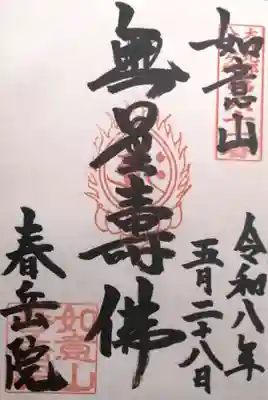 如意山
無量壽佛
春岳院
令和八年
五月二十八日
如意山